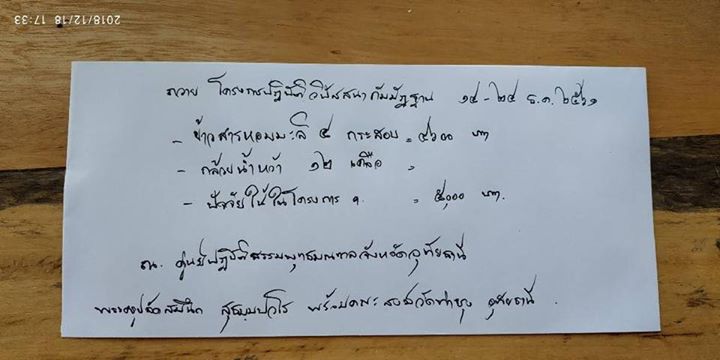 2018/12/18 17:33
ถวาย โครงการปฏิบัติวิปัสสนากัมมัฏฐาน ๑๔ - ๒๔ ธ.ค. ๒๕๖๑
- ข้าวสารหอมมะลิ ๔ กระสอบ = ๔๖๐๐ บาท
- กล้วยน้ำหว้า ๑๒ เครือ =
- ปัจจัยใช้ในโครงการ ฯ = ๕,๐๐๐ บาท.
ณ. ศูนย์ปฏิบัติธรรมพุทธมณฑลจังหวัดอุทัยธานี
พร้อมคณะสงฆ์วัดท่าซุง อุทัยธานี.